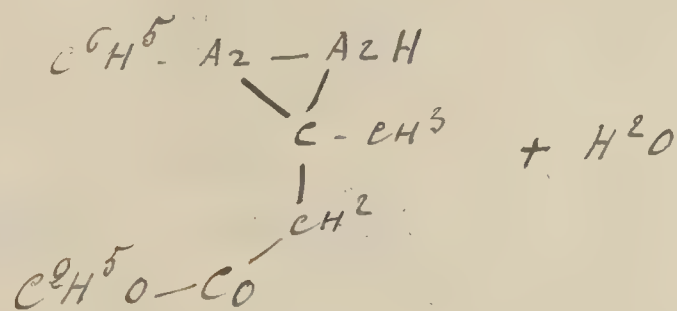 C⁶H⁵ - Az — AzH
C - CH³
+ H²O
CH²
C²H⁵O — CO